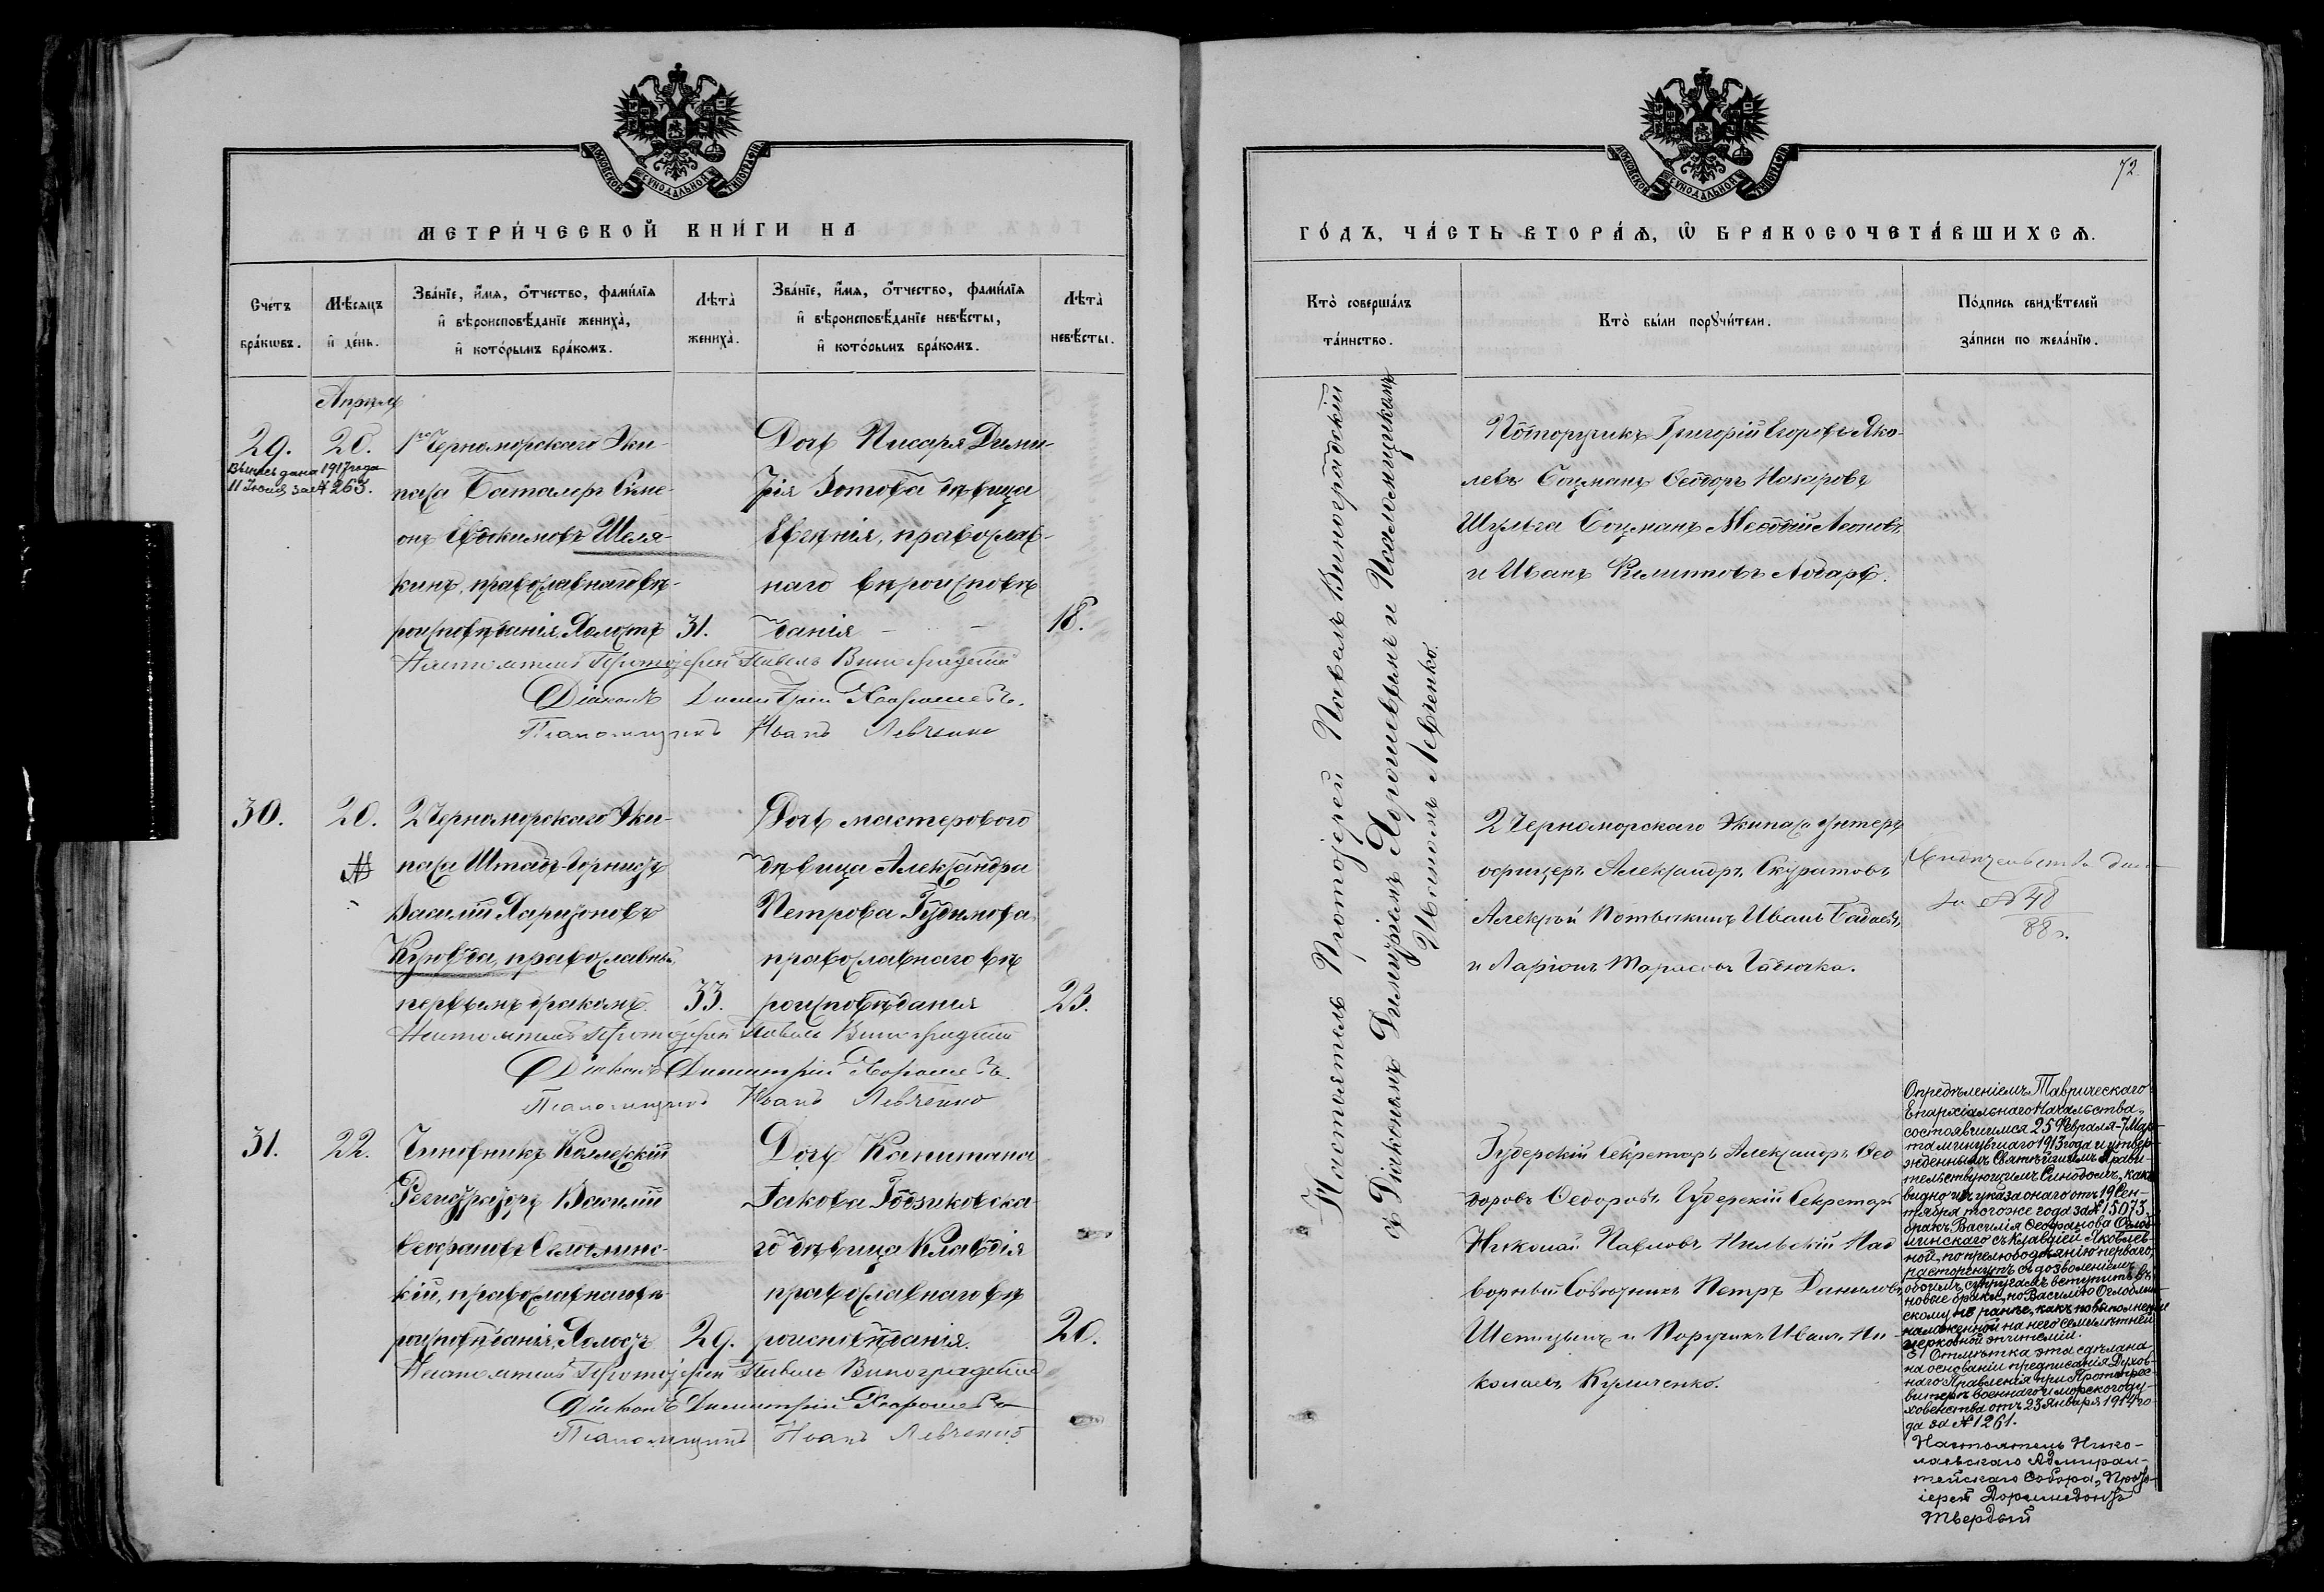 МОСКОВСКОЙ СѴНОДАЛЬНОЙ ТИПОГРАФІИ
МЕТРИ́ЧЕСКОЙ КНИ́ГИ НА
Сче́тъ бра́кωвъ.
Мѣ́сяцъ и҆ де́нь.
Зва́нїе, и҆́мя, ѻ҆́тчество, фами́лїя
и҆ вѣроисповѣ́данїе жениха̀,
и҆ кото́рымъ бра́комъ.
Лѣта̀ жениха̀.
Зва́нїе, и҆́мя, ѻ҆́тчество, фами́лїя
и҆ вѣроисповѣ́данїе невѣ́сты,
и҆ кото́рымъ бра́комъ.
Лѣта̀ невѣ́сты.
Апрѣль
29.
20.
Выпись дана 1917 года
11 Іюня за № 263.
1го Черноморскаго Эки-
пажа Баталеръ Симе-
онъ Евдокимовъ Шеля-
кинъ, православнаго вѣ-
роисповѣданія, Холостъ
31.
Дочь Писаря Дими-
трія Зотова дѣвица
Евгенія, православ-
наго вѣроисповѣ
данія
18.
Настоятель Протоіерей Павелъ Виноградскій
Діаконъ Димитрій Хорошевъ.
Псаломщикъ Иванъ Левченко
30.
20.
2 Черноморскаго Эки-
пажа Штабъ-горнистъ
Василій Харитоновъ
православный
первымъ бракомъ.
33.
Дочь мастероваго
дѣвица Александра
Петрова Гудимова,
православнаго вѣ
роисповѣданія
23.
Настоятель Протоіерей Павелъ Виноградскій
Діаконъ Димитрій Хорошевъ.
Псаломщикъ Иванъ Левченко
31.
22.
Чиновникъ Коллежскій
Регистраторъ Василій
Ѳеофановъ Оглоблинс-
кій, православнаго вѣ
роисповѣданія, Холостъ
29.
Дочь Капитана
Іакова Гдзиковска-
го дѣвица Клавдія
православнаго вѣ
роисповѣданія.
20.
Настоятель Протоіерей Павелъ Виноградскій
Діаконъ Димитрій Хорошевъ
Псаломщикъ Иванъ Левченко
72.
МОСКОВСКОЙ СѴНОДАЛЬНОЙ ТИПОГРАФІИ
ГО́ДЪ, ЧА́СТЬ ВТОРА́Ѧ, Ѽ БРАКОСОЧЕТА́ВШИХСѦ.
Кто̀ соверша́лъ
та́инство.
Кто̀ бы́ли порꙋчи́тели.
По́дпись свидѣ́телей
за́писи по жела́нїю.
Настоятель Протоіерей Павелъ Виноградскій
съ Діакономъ Димитріемъ Хорошевымъ и Псаломщикомъ
Иваномъ Левченко.
Подпоручикъ Григорій Егоровъ Яко-
левъ Боцманъ Ѳеодоръ Назаровъ
Шульга Боцманъ Меѳодій Леоновъ
и Иванъ Лодарь.
2 Черноморскаго Экипажа Унтеръ
офицеръ Александръ Скуратовъ
Алексѣй Потычкинъ Иванъ
и Ларіонъ Тарасовъ Гадючка.
Свидѣтельство дано
за № 48
88 г.
Губерскій Секретарь Александръ Ѳео
доровъ Ѳедоровъ Губерскій Секретарь
Николай Павловъ Нильскій Над
ворный Совѣтникъ Петръ Даниловъ
Шепицынъ и Поручикъ Иванъ Ни-
колаевъ Куличенко.
Опредѣленіемъ Таврическаго
Епархіальнаго Начальства,
состоявшимся 25 Февраля-7 Мар-
та минувшаго 1913 года и утвер-
жденнымъ Святѣйшимъ Прави-
тельствующимъ Сѵнодомъ, какъ
видно изъ указа онаго отъ 19 Сен-
тября того же года за № 15073,
бракъ Василія Ѳеофанова Оглоб-
линскаго съ Клавдіей Яковлев-
ной, по прелюбодѣянію перваго,
расторгнутъ съ дозволеніемъ
обоимъ супругамъ вступить въ
новые браки, но Василію Оглоблин-
скому не ранѣе, какъ по выполненіи
наложенной на него семилѣтней
церковной эпитеміи.
Отмѣтка эта сдѣлана
на основаніи предписанія Духов-
наго Правленія при Протопрес-
витерѣ военнаго и морского ду-
ховенства отъ 23 Января 1914 го-
да за № 1261.
Настоятель Нико-
лаевскаго Адмирал-
тейскаго Собора, Прото-
іерей Доримедонтъ
Твердый